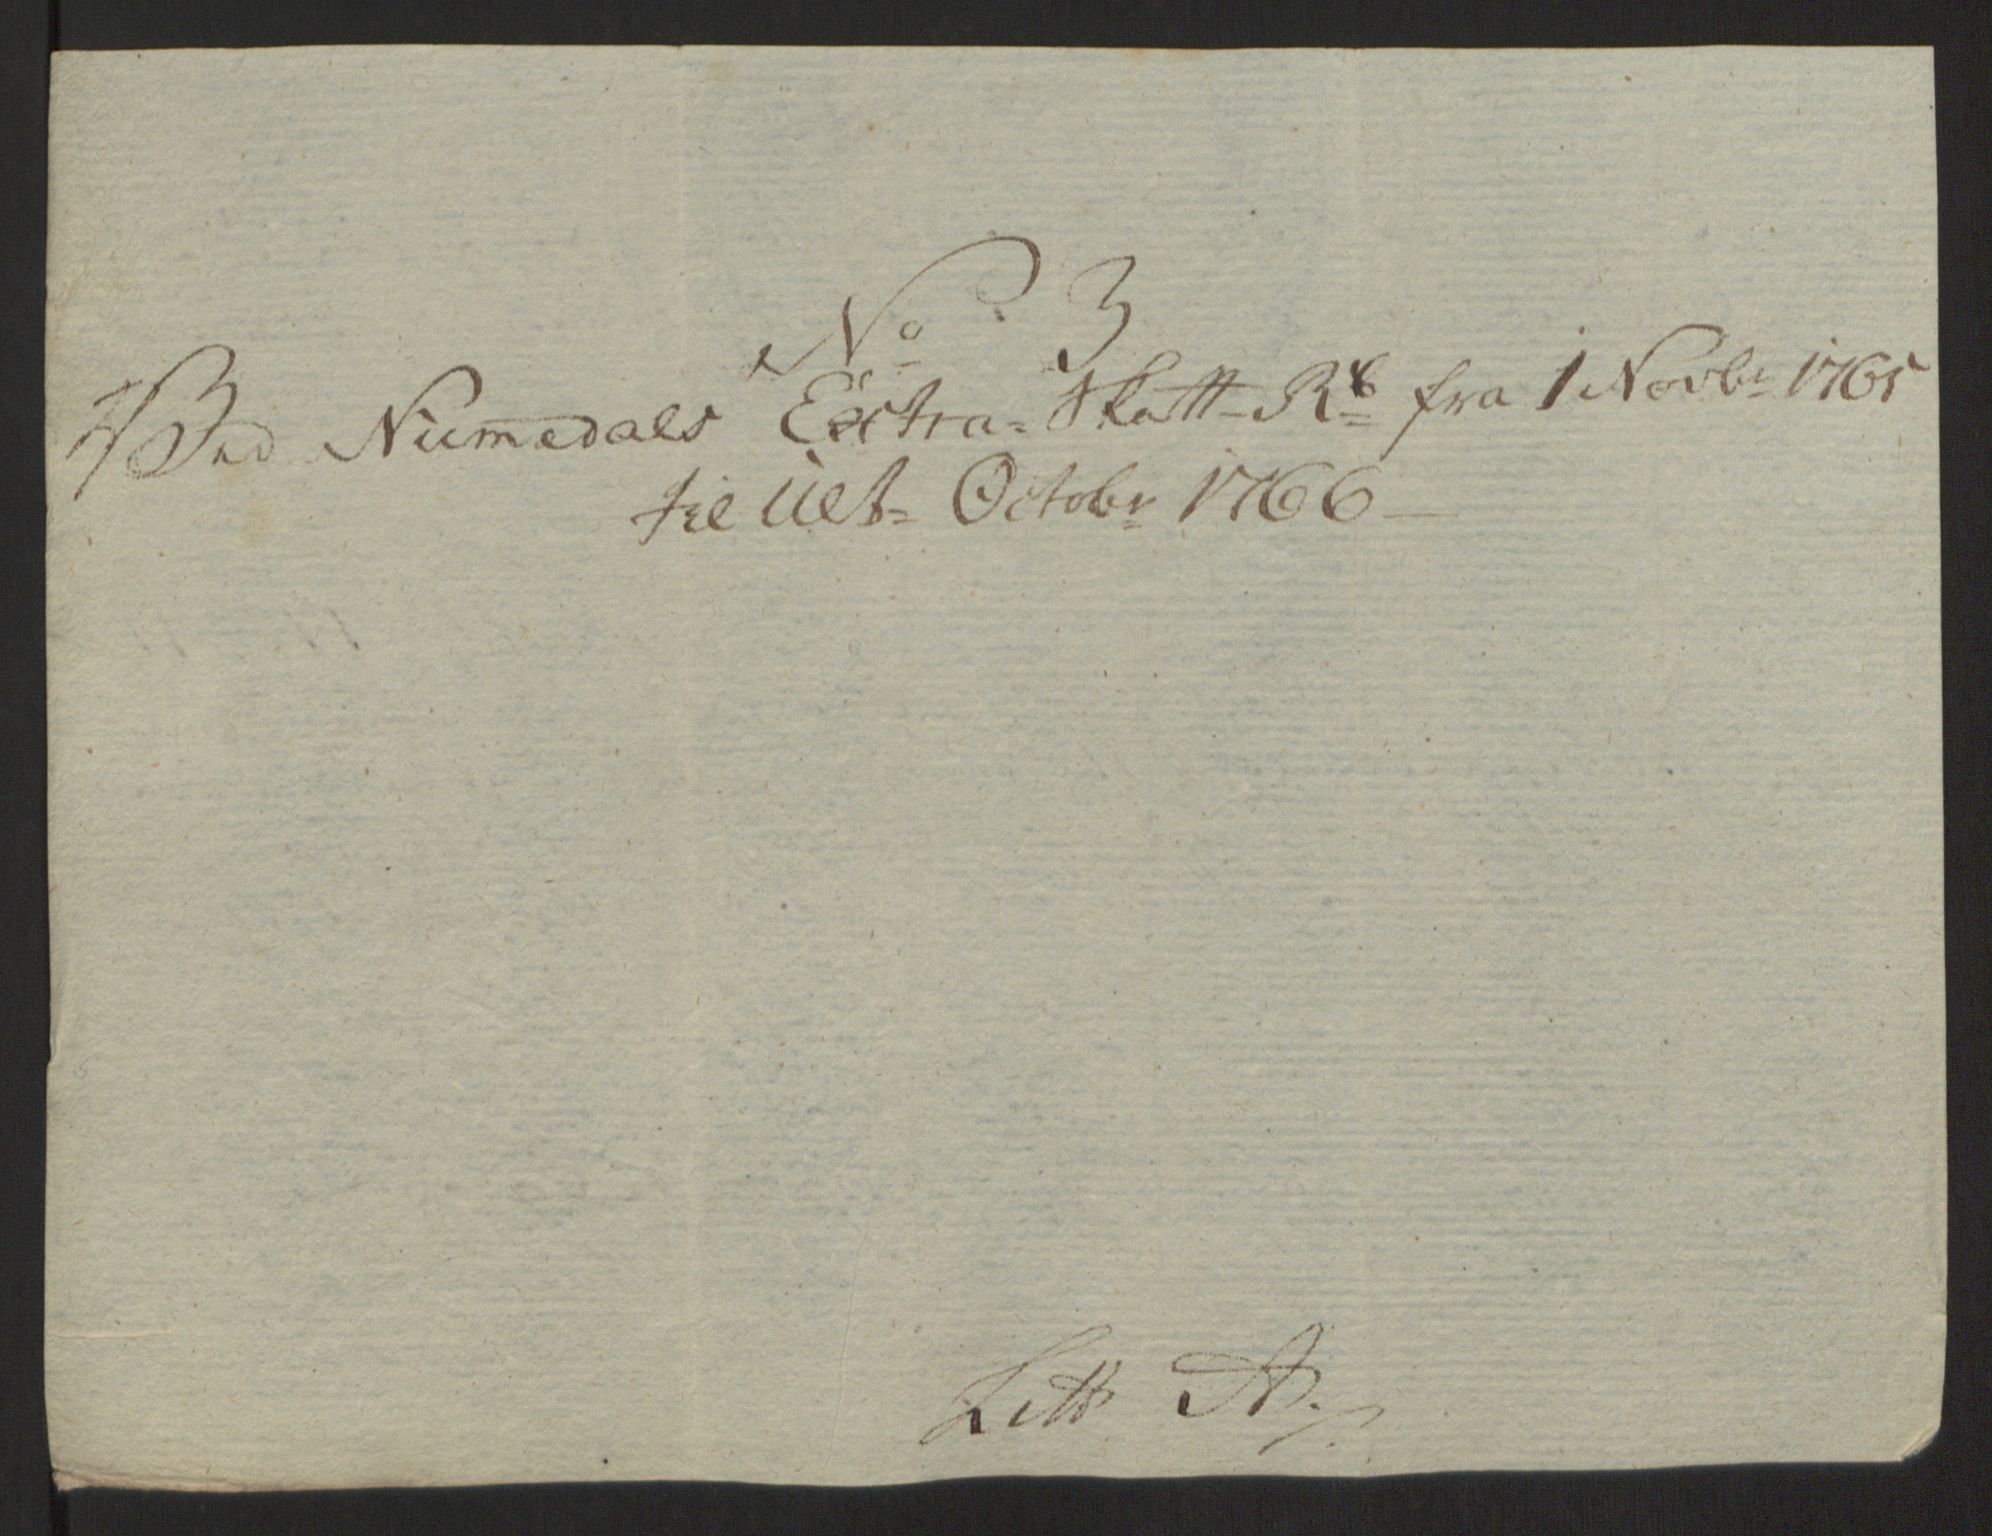 No 3
Ved Numedals Extra-Skatt-Rb fra 1 Novbr 1765
til Ult. Octobr 1766
Litr A.